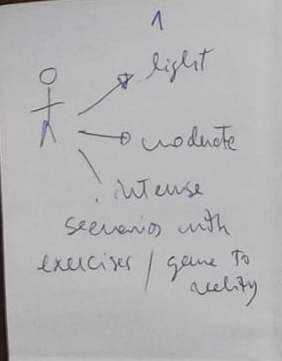 1
light
moderate
intense
scenarios with
exercises / game to
reality